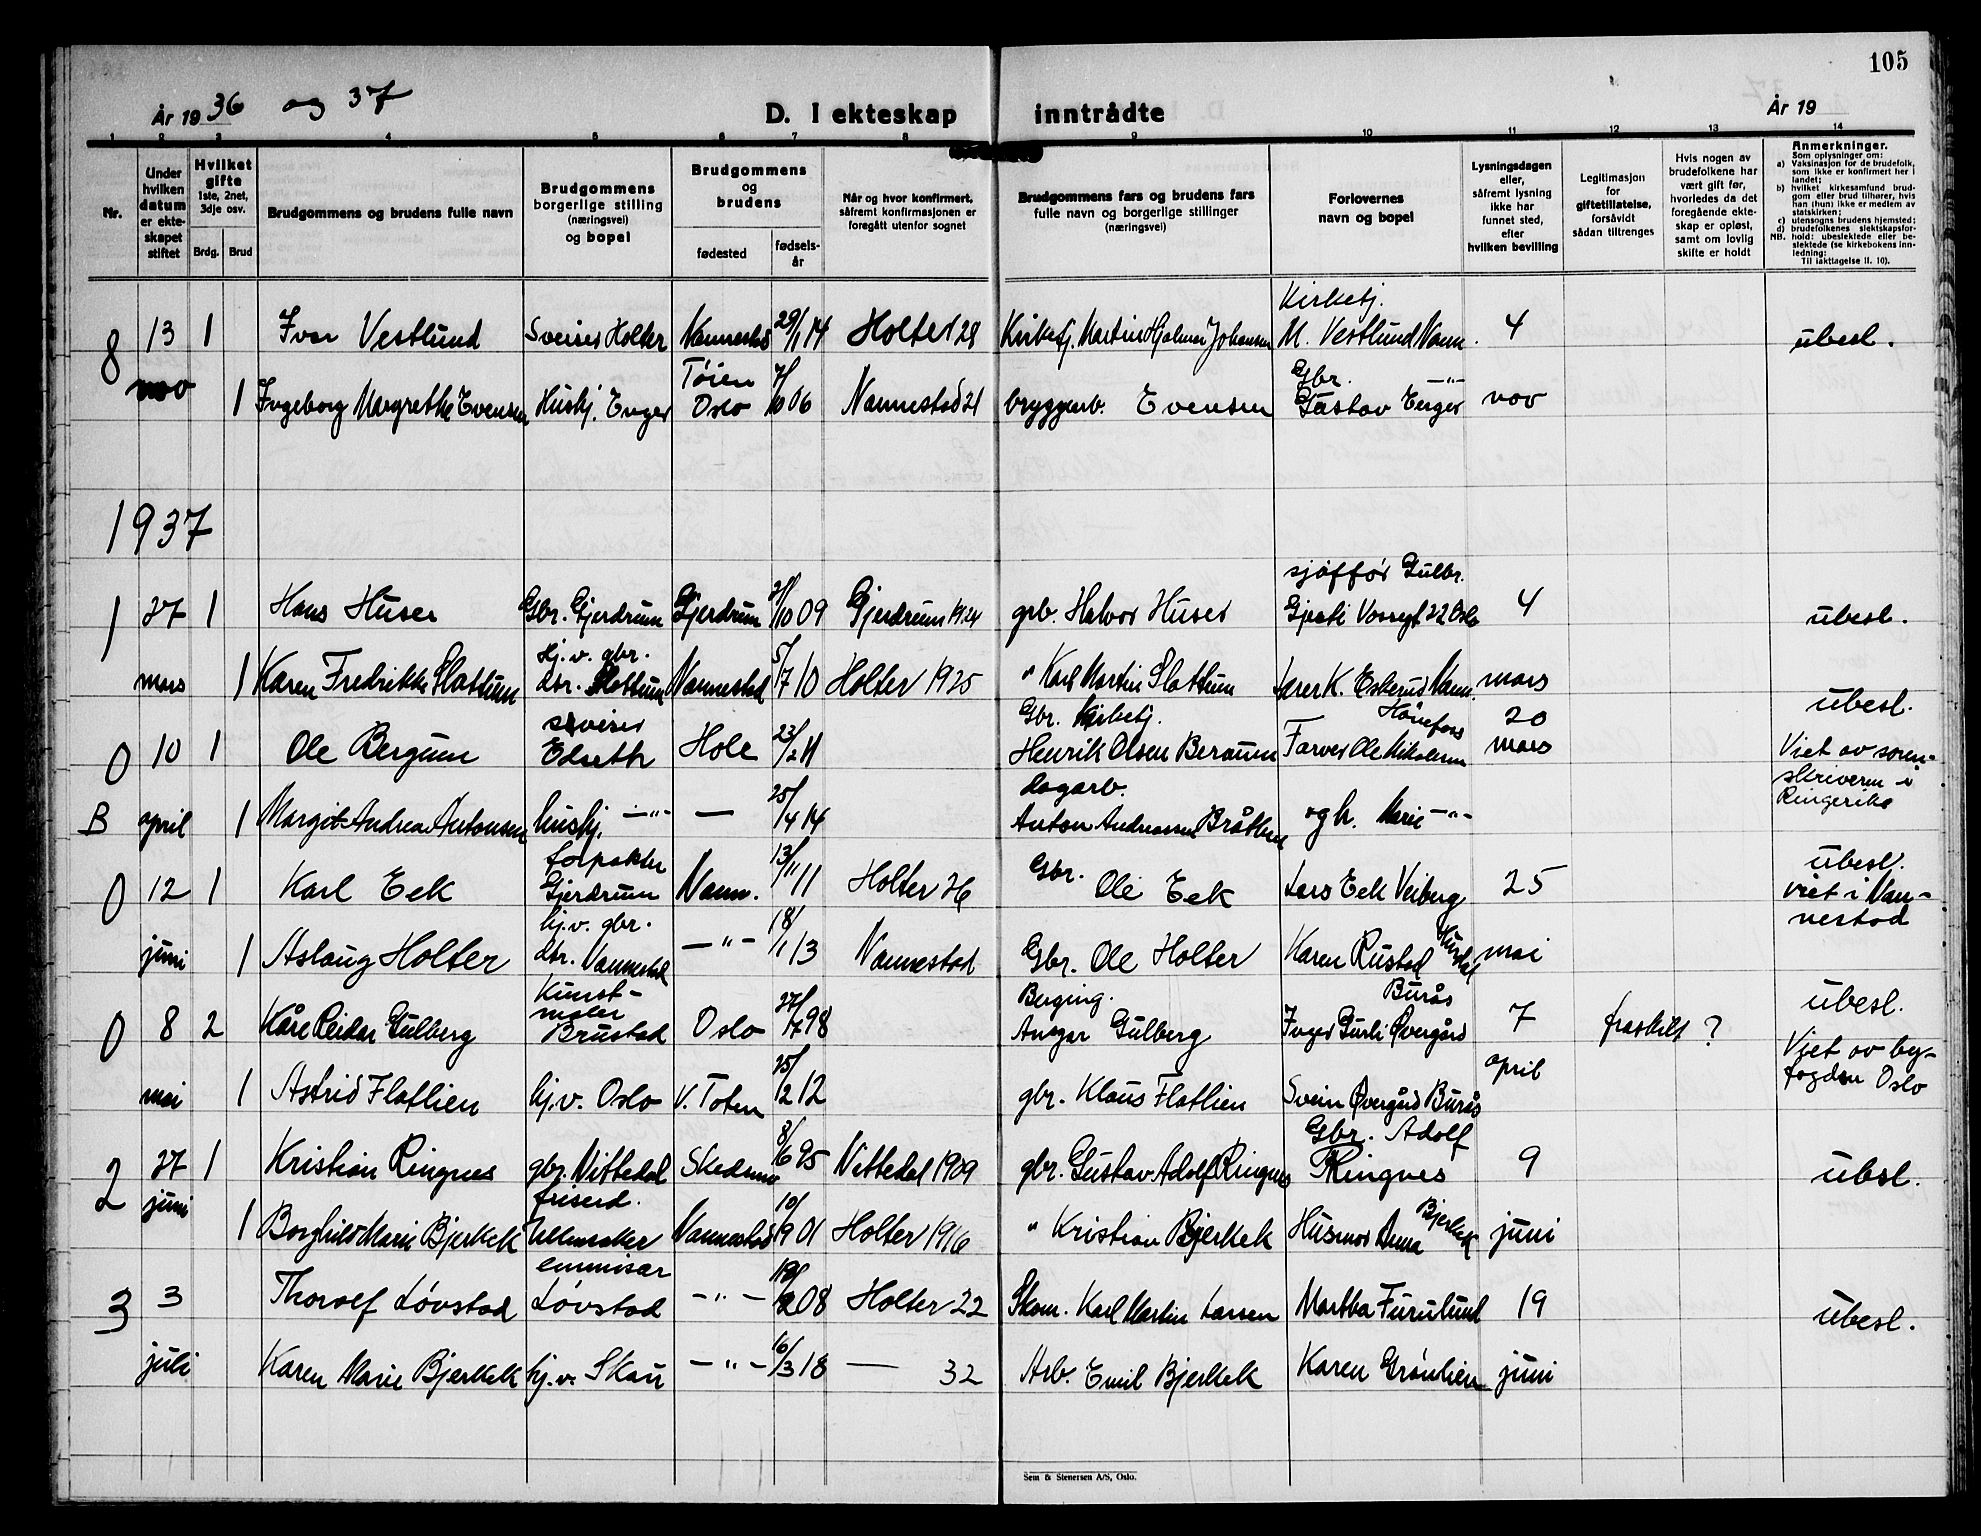 105
År 1936 og 37
D. I ekteskap inntrådte
År 19
1 2 3 4 5 6 7 8 9 10 11 12 13 14
Nr.
Under hvilken datum er ekteskapet stiftet
Hvilket gifte 1ste, 2net, 3dje osv.
Brdg. Brud
Brudgommens og brudens fulle navn
Brudgommens borgerlige stilling (næringsvei) og bopel
Brudgommens og brudens
fødested
fødselsår
Når og hvor konfirmert, såfremt konfirmasjonen er foregått utenfor sognet
Brudgommens fars og brudens fars fulle navn og borgerlige stillinger (næringsvei)
Forlovernes navn og bopel
Lysningsdagen eller, såfremt lysning ikke har funnet sted, efter hvilken bevilling
Legitimasjon for giftetillatelse, forsåvidt sådan tiltrenges
Hvis nogen av brudefolkene har vært gift før, hvorledes da det foregående ekteskap er opløst, samt om lovlig skifte er holdt
Anmerkninger.
Som oplysninger om:
a) Vaksinasjon for de brudefolk, som ikke er konfirmert her i landet;
b) hvilket kirkesamfund brudgom eller brud tilhører, hvis han (hun) ikke er medlem av statskirken;
c) utensogns brudens hjemsted;
d) brudefolkenes slektskapsforhold: ubeslektede eller beslektede (se kirkebokens innledning:
NB. Til iakttagelse II. 10).
8 13 1 Ivar Vestlund Sveiser Holter Nannestad 29/1 14 Holter 28 Kirketj. Martin Hjalmar Johansen Kirketj. M. Vestlund Nann. 4 ubesl.
nov 1 Ingeborg Margrethe Evensen Hushj. Enger Tøien Oslo 7/10 06 Nannestad 21 bryggearb. Evensen Gbr. Gustav Enger -"- nov
1937
1 27 1 Hans Huser Gbr. Gjerdrum Gjerdrum 21/10 09 Gjerdrum 1924 grb. Halvor Huser sjåffør Gulbr. Gjesti Vossegt 22 Oslo 4 ubesl.
mars 1 Karen Fredrikke Slattum hj.v. gbr. dtr. Slattum Nannestad 5/7 10 Holter 1925 " Karl Martin Slattum Lærer K. Eskerud Nann. mars
0 10 1 Ole Bergum sveiser Elseth Hole 23/2 11 Gbr. Kirketj. Henrik Olsen Beraum Farver Ole Mikelsen Hønefoss 20 mars ubesl. Viet av sorenskriveren i Ringerike
B april 1 Margit Andrea Antonsen hushj. -"- — 25/4 14 dagarb. Anton Andreassen Bråthen og h. Marie -"-
0 12 1 Karl Eek forpakter Gjerdrum Nann. 13/11 11 Holter 26 Gbr. Ole Eek Lars Eek Veiberg 25 ubesl. viet i Nannestad
juni 1 Aslaug Holter hj.v. gbr. dtr. Nannestad -"- 18/1 13 Nannestad Gbr. Ole Holter Karen Rustad mai
0 8 2 Kåre Reidar Gulberg Kunstmaler Brustad Oslo 27/7 98 Berging. Ansgar Gulberg Inger Gurli Øvergård Burås 7 fraskilt ? ubesl. Viet av byfogden Oslo
mai 1 Astrid Flatlien hj.v. Oslo V. Toten 25/12 12 gbr. Klaus Flatlien Svein Øvergård Burås april
2 27 1 Kristian Ringnes gbr. Nittedal Skedsmo 8/6 95 Nittedal 1909 gbr. Gustav Adolf Ringnes Gbr. Adolf Ringnes 9 ubesl.
juni 1 Borghild Marie Bjerkek friserd. Ullensaker Nannestad 10/9 01 Holter 1916 " Kristian Bjerkek Husmor Anna Bjerkek juni
3 3 Thorolf Løvstad emmisær Løvstad -"- 08 Holter 22 Skom. Karl Martin Larsen Martha Furulund 19 ubesl.
juli Karen Marie Bjerkek hj.v. Skau -"- 16/3 18 — 32 Arb. Emil Bjerkek Karen Grønlien juni
Sem & Stenersen A/S, Oslo.